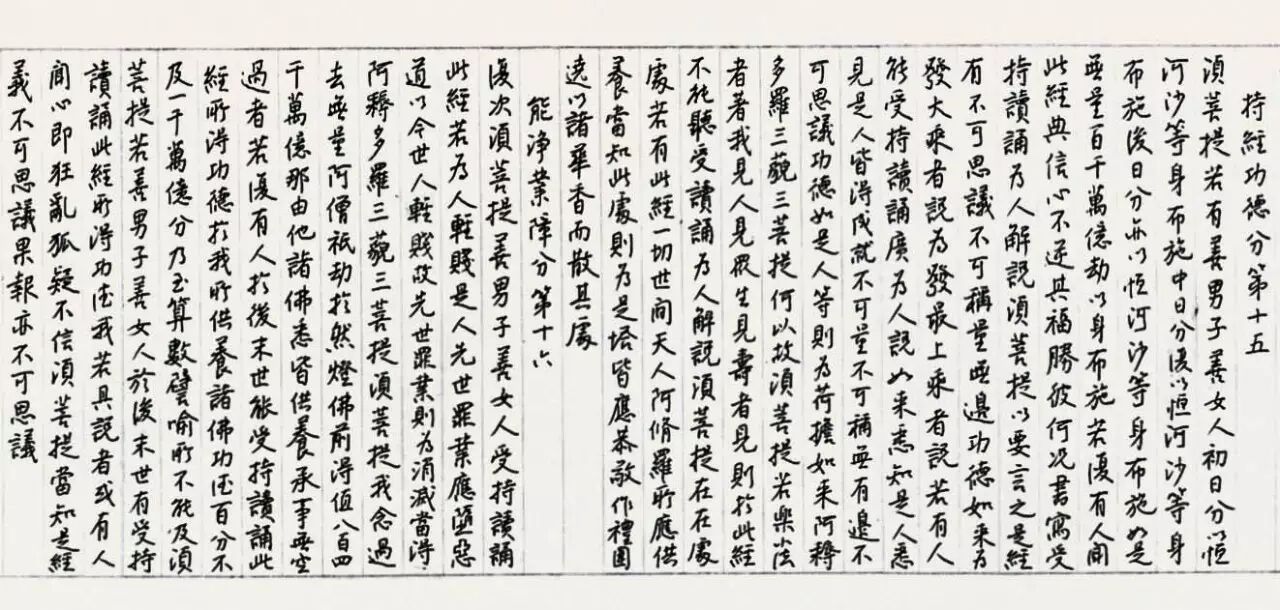 持經功德分第十五
須菩提若有善男子善女人初日分以恒
河沙等身布施中日分復以恒河沙等身
布施後日分亦以恒河沙等身布施如是
無量百千萬億劫以身布施若復有人聞
此經典信心不逆其福勝彼何況書寫受
持讀誦為人解說須菩提以要言之是經
有不可思議不可稱量無邊功德如來為
發大乘者說為發最上乘者說若有人
能受持讀誦廣為人說如來悉知是人悉
見是人皆得成就不可量不可稱無有邊不
可思議功德如是人等則為荷擔如來阿耨
多羅三藐三菩提何以故須菩提若樂小法
者著我見人見眾生見壽者見則於此經
不能聽受讀誦為人解說須菩提在在處
處若有此經一切世間天人阿脩羅所應供
養當知此處則為是塔皆應恭敬作禮圍
遶以諸華香而散其處
能淨業障分第十六
復次須菩提善男子善女人受持讀誦
此經若為人輕賤是人先世罪業應墮惡
道以今世人輕賤故先世罪業則為消滅當得
阿耨多羅三藐三菩提須菩提我念過
去無量阿僧祇劫於然燈佛前得值八百四
千萬億那由他諸佛悉皆供養承事無空
過者若復有人於後末世能受持讀誦此
經所得功德於我所供養諸佛功德百分不
及一千萬億分乃至算數譬喻所不能及須
菩提若善男子善女人於後末世有受持
讀誦此經所得功德我若具說者或有人
聞心即狂亂狐疑不信須菩提當知是經
義不可思議果報亦不可思議